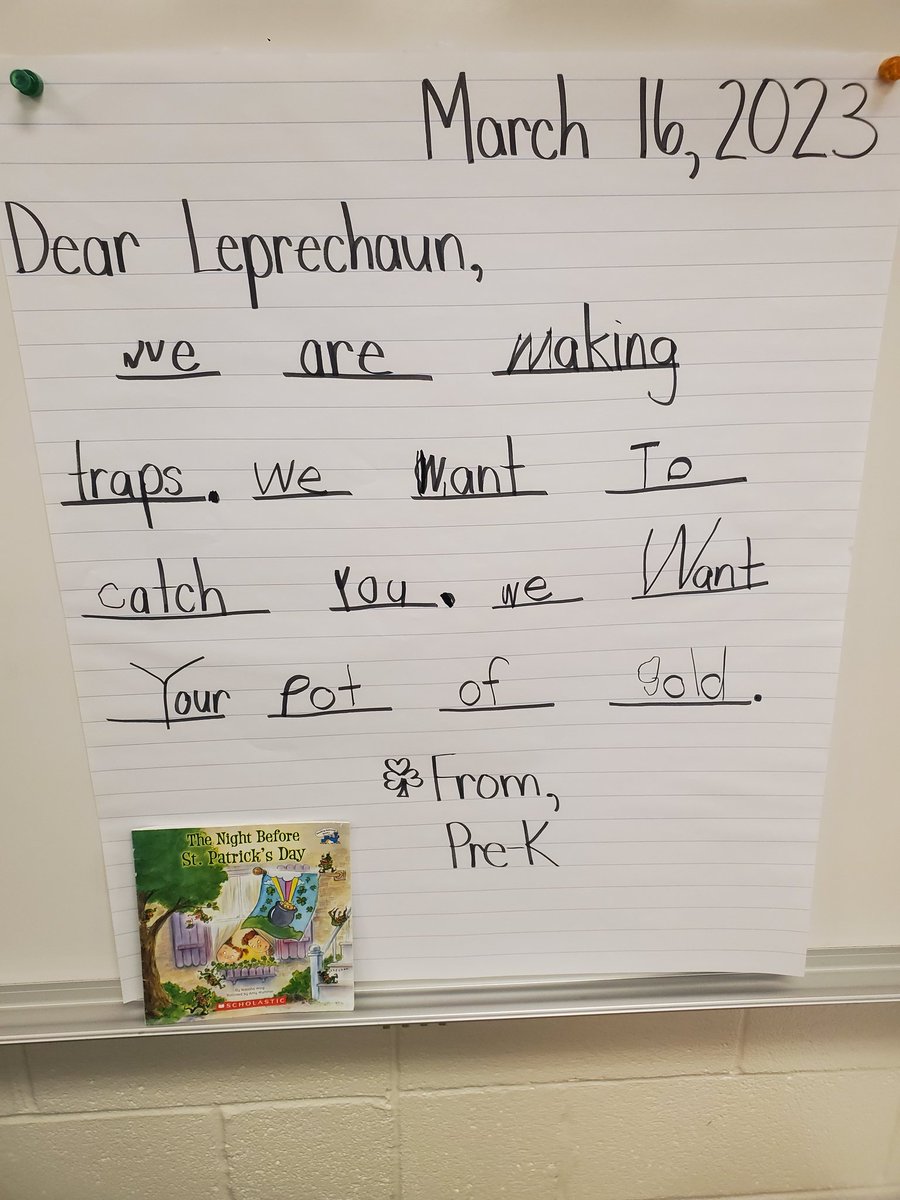 March 16, 2023
Dear Leprechaun,
we are making
traps. We want To
catch You. we Want
Your Pot of gold.
From,
Pre-K
The Night Before
St. Patrick's Day
SCHOLASTIC